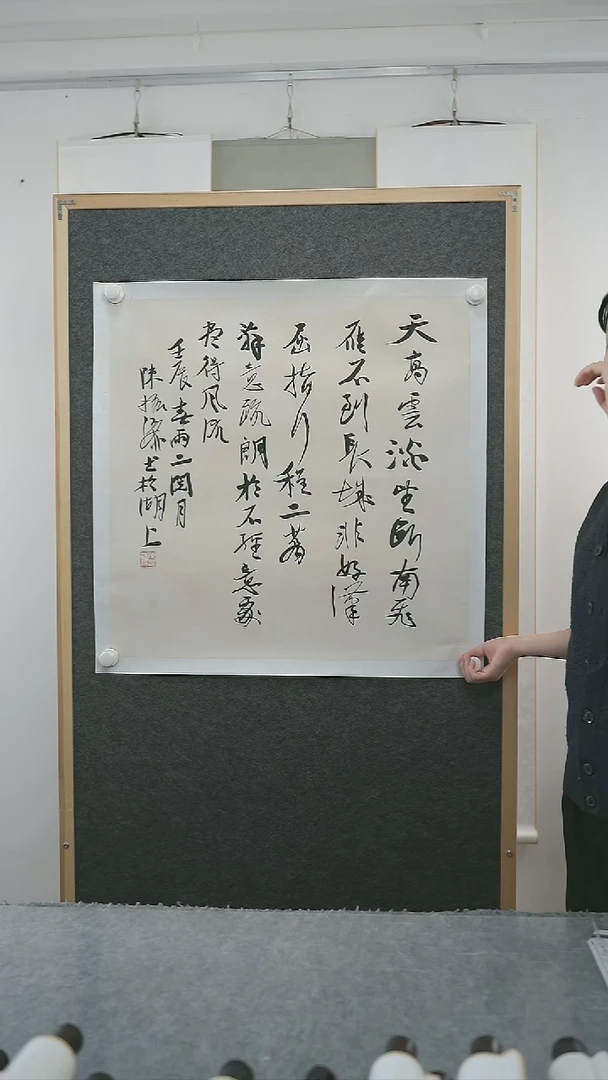 天高雲淡望斷南飛
雁不到長城非好漢
屈指行程二萬
辭意疏朗於不經意處
盡得風流
壬辰春雨二閏月
陳振濂書於湖上